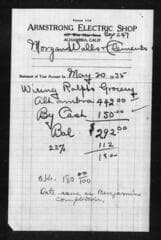 ARMSTRONG ELECTRIC SHOP
ALHAMBRA, CALIF.
Morgan Walls + Clements
Statement of Your Account to May 20 1925
Wiring Ralphs Grocery
Alhambra 442.00
By Cash 150.00
Bal $292.00
112
180
O.K. 180 00/100
Date same as Benjamin
Completion.